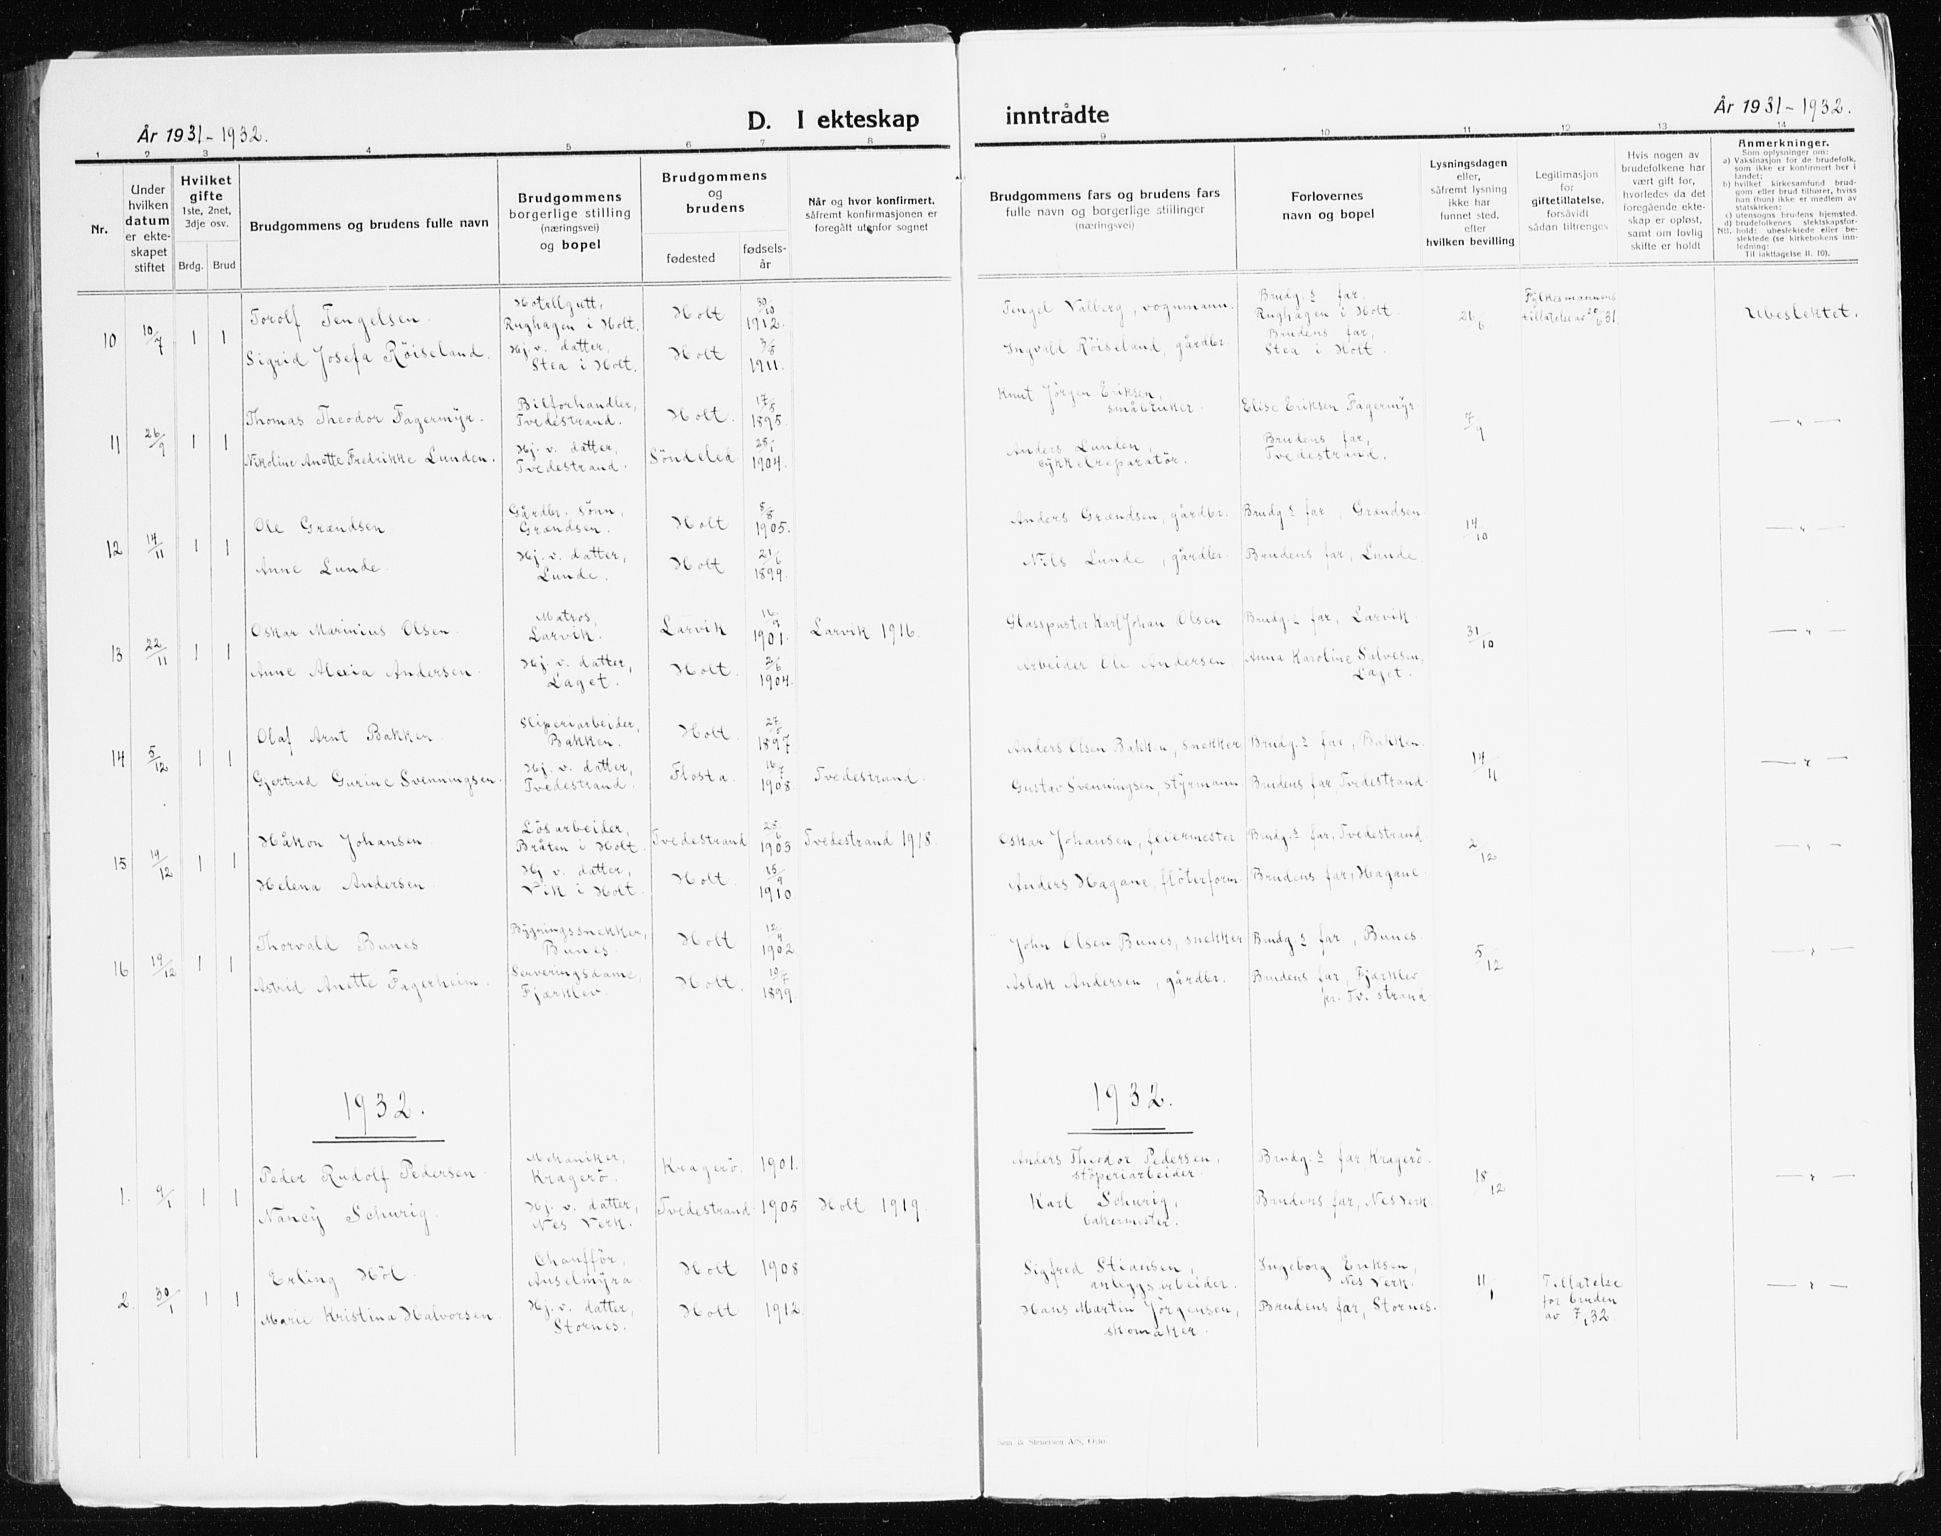 År 1931-1932.
D. I ekteskap
inntrådte
År 1931-1932.
1 2 3 4 5 6 7 8 9 10 11 12 13 14
Nr.
Under
hvilken
datum
er ekte-
skapet
stiftet
Hvilket
gifte
1ste, 2net,
3dje osv.
Brdg. Brud
Brudgommens og brudens fulle navn
Brudgommens
borgerlige stilling
(næringsvei)
og bopel
Brudgommens
og
brudens
fødested
fødsels-
år
Når og hvor konfirmert,
såfremt konfirmasjonen er
foregått utenfor sognet
Brudgommens fars og brudens fars
fulle navn og borgerlige stillinger
(næringsvei)
Forlovernes
navn og bopel
Lysningsdagen
eller,
såfremt lysning
ikke har
funnet sted,
efter
hvilken bevilling
Legitimasjon
for
giftetillatelse,
forsåvidt
sådan tiltrenges
Hvis nogen av
brudefolkene har
vært gift før,
hvorledes da det
foregående ekte-
skap er opløst,
samt om lovlig
skifte er holdt
Anmerkninger.
Som oplysninger om:
a) Vaksinasjon for de brudefolk,
som ikke er konfirmert her i
landet;
b) hvilket kirkesamfund brud-
gom eller brud tilhører, hviss
han (hun) ikke er medlem av
statskirken;
c) utensogns brudens hjemsted.
d) brudefolkenes slektskapsfor-
hold: ubeslektede eller be-
slektede (se kirkebokens inn-
ledning:
Til iakttagelse II. 10).
NB.
10 10/7 1 1
Torolf Tengelsen.
Hotellgutt,
Rughagen i Holt.
Holt
30/10
1912.
Tengel Valberg, vognmann.
Brudg.s far,
Rughagen i Holt.
21/6
Fylkesmannens
tillatelse av 20/6 31.
Ubeslektet.
Sigrid Josefa Röiseland.
Hj. v. datter,
Stea i Holt.
Holt
3/8
1911.
Ingvald Röiseland, gårdbr.
Brudens far,
Stea i Holt.
11 26/9 1 1
Thomas Theodor Fagermyr.
Bilforhandler,
Tvedestrand.
Holt.
17/5
1895.
Knut Jørgen Eriksen,
småbruker.
Elise Eriksen Fagermyr.
7/9
— " —
Nikoline Anette Fredrikke Lunden.
Hj. v. datter,
Tvedestrand.
Söndeled
1904.
Anders Lunden,
cykkelreparatör.
Brudens far,
Tvedestrand.
12 14/11 1 1
Ole Grændsen
Gårdbr. sönn,
Grændsen.
Holt
5/8
1905.
Anders Grændsen, gårdbr.
Brudg.s far, Grændsen.
14/10
— " —
Anne Lunde.
Hj. v. datter,
Lunde.
Holt
21/6
1899.
Nils Lunde, gårdbr.
Brudens far, Lunde.
13 22/11 1 1
Oskar Marinius Olsen.
Matros,
Larvik.
Larvik
16/9
1901.
Larvik 1916.
Glasspuster Karl Johan Olsen
Brudg.s far, Larvik.
31/10
— " —
Anne Alexia Andersen.
Hj. v. datter,
Laget.
Holt.
2/6
1904.
Arbeider Ole Andersen,
Anna Karoline Salvesen,
Laget.
14 5/12 1 1
Olaf Arnt Bakken.
Sliperiarbeider,
Bakken.
Holt.
1897
Anders Olsen Bakken, snekker
Brudg.s far, Bakken.
14/11
— " —
Gjertrud Gurine Svenningsen.
Hj. v. datter,
Tvedestrand.
Flosta.
16/7
1908.
Tvedestrand.
Gustav Svenningsen, styrmann
Brudens far, Tvedestrand.
15 19/12 1 1
Håkon Johansen.
Lösarbeider,
Bråten i Holt.
Tvedestrand
1903
Tvedestrand 1918.
Oskar Johansen, feiermester
Brudg.s far, Tvedestrand.
2/12
— " —
Helena Andersen.
Hj v. datter,
Vik i Holt.
Holt.
15/9
1910.
Anders Hagane, flöterform.
Brudens far, Hagane.
16 19/12 1 1
Thorvald Bunes
Bygningssnekker,
Bunes.
Holt
12/4
1902.
John Olsen Bunes, snekker
Brudg.s far, Bunes.
5/12
— " —
Astrid Anette Fagerheim.
Serveringsdame,
Fjærklev.
Holt.
10/7
1899.
Aslak Andersen, gårdbr.
Brudens far, Fjærklev
pr. Tv. strand.
1932.
1932.
1. 9/1 1 1
Peder Rudolf Pedersen.
Mekaniker,
Kragerö.
Kragerö. 1901.
Anders Theodor Pedersen,
stöperiarbeider.
Brudg.s far, Kragerö.
18/12
— " —
Nancy Schurig.
Hj. v. datter,
Nes Verk.
Tvedestrand. 1905
Holt 1919.
Karl Schurig,
bakermester.
Brudens far, Nes Verk.
2. 30/1 1 1
Erling Höl.
Chaufför,
Anselmyra
Holt 1908
Sigfred Stiansen,
anleggsarbeider.
Ingeborg Eriksen,
Nes Verk.
11/1
Tillatelse
for bruden
av 7/1 32.
— " —
Marie Kristina Halvorsen.
Hj. v. datter,
Stornes.
Holt 1912.
Hans Martin Jörgensen,
skomaker.
Brudens far, Stornes.
Sem & Stenersen A/S, Oslo.